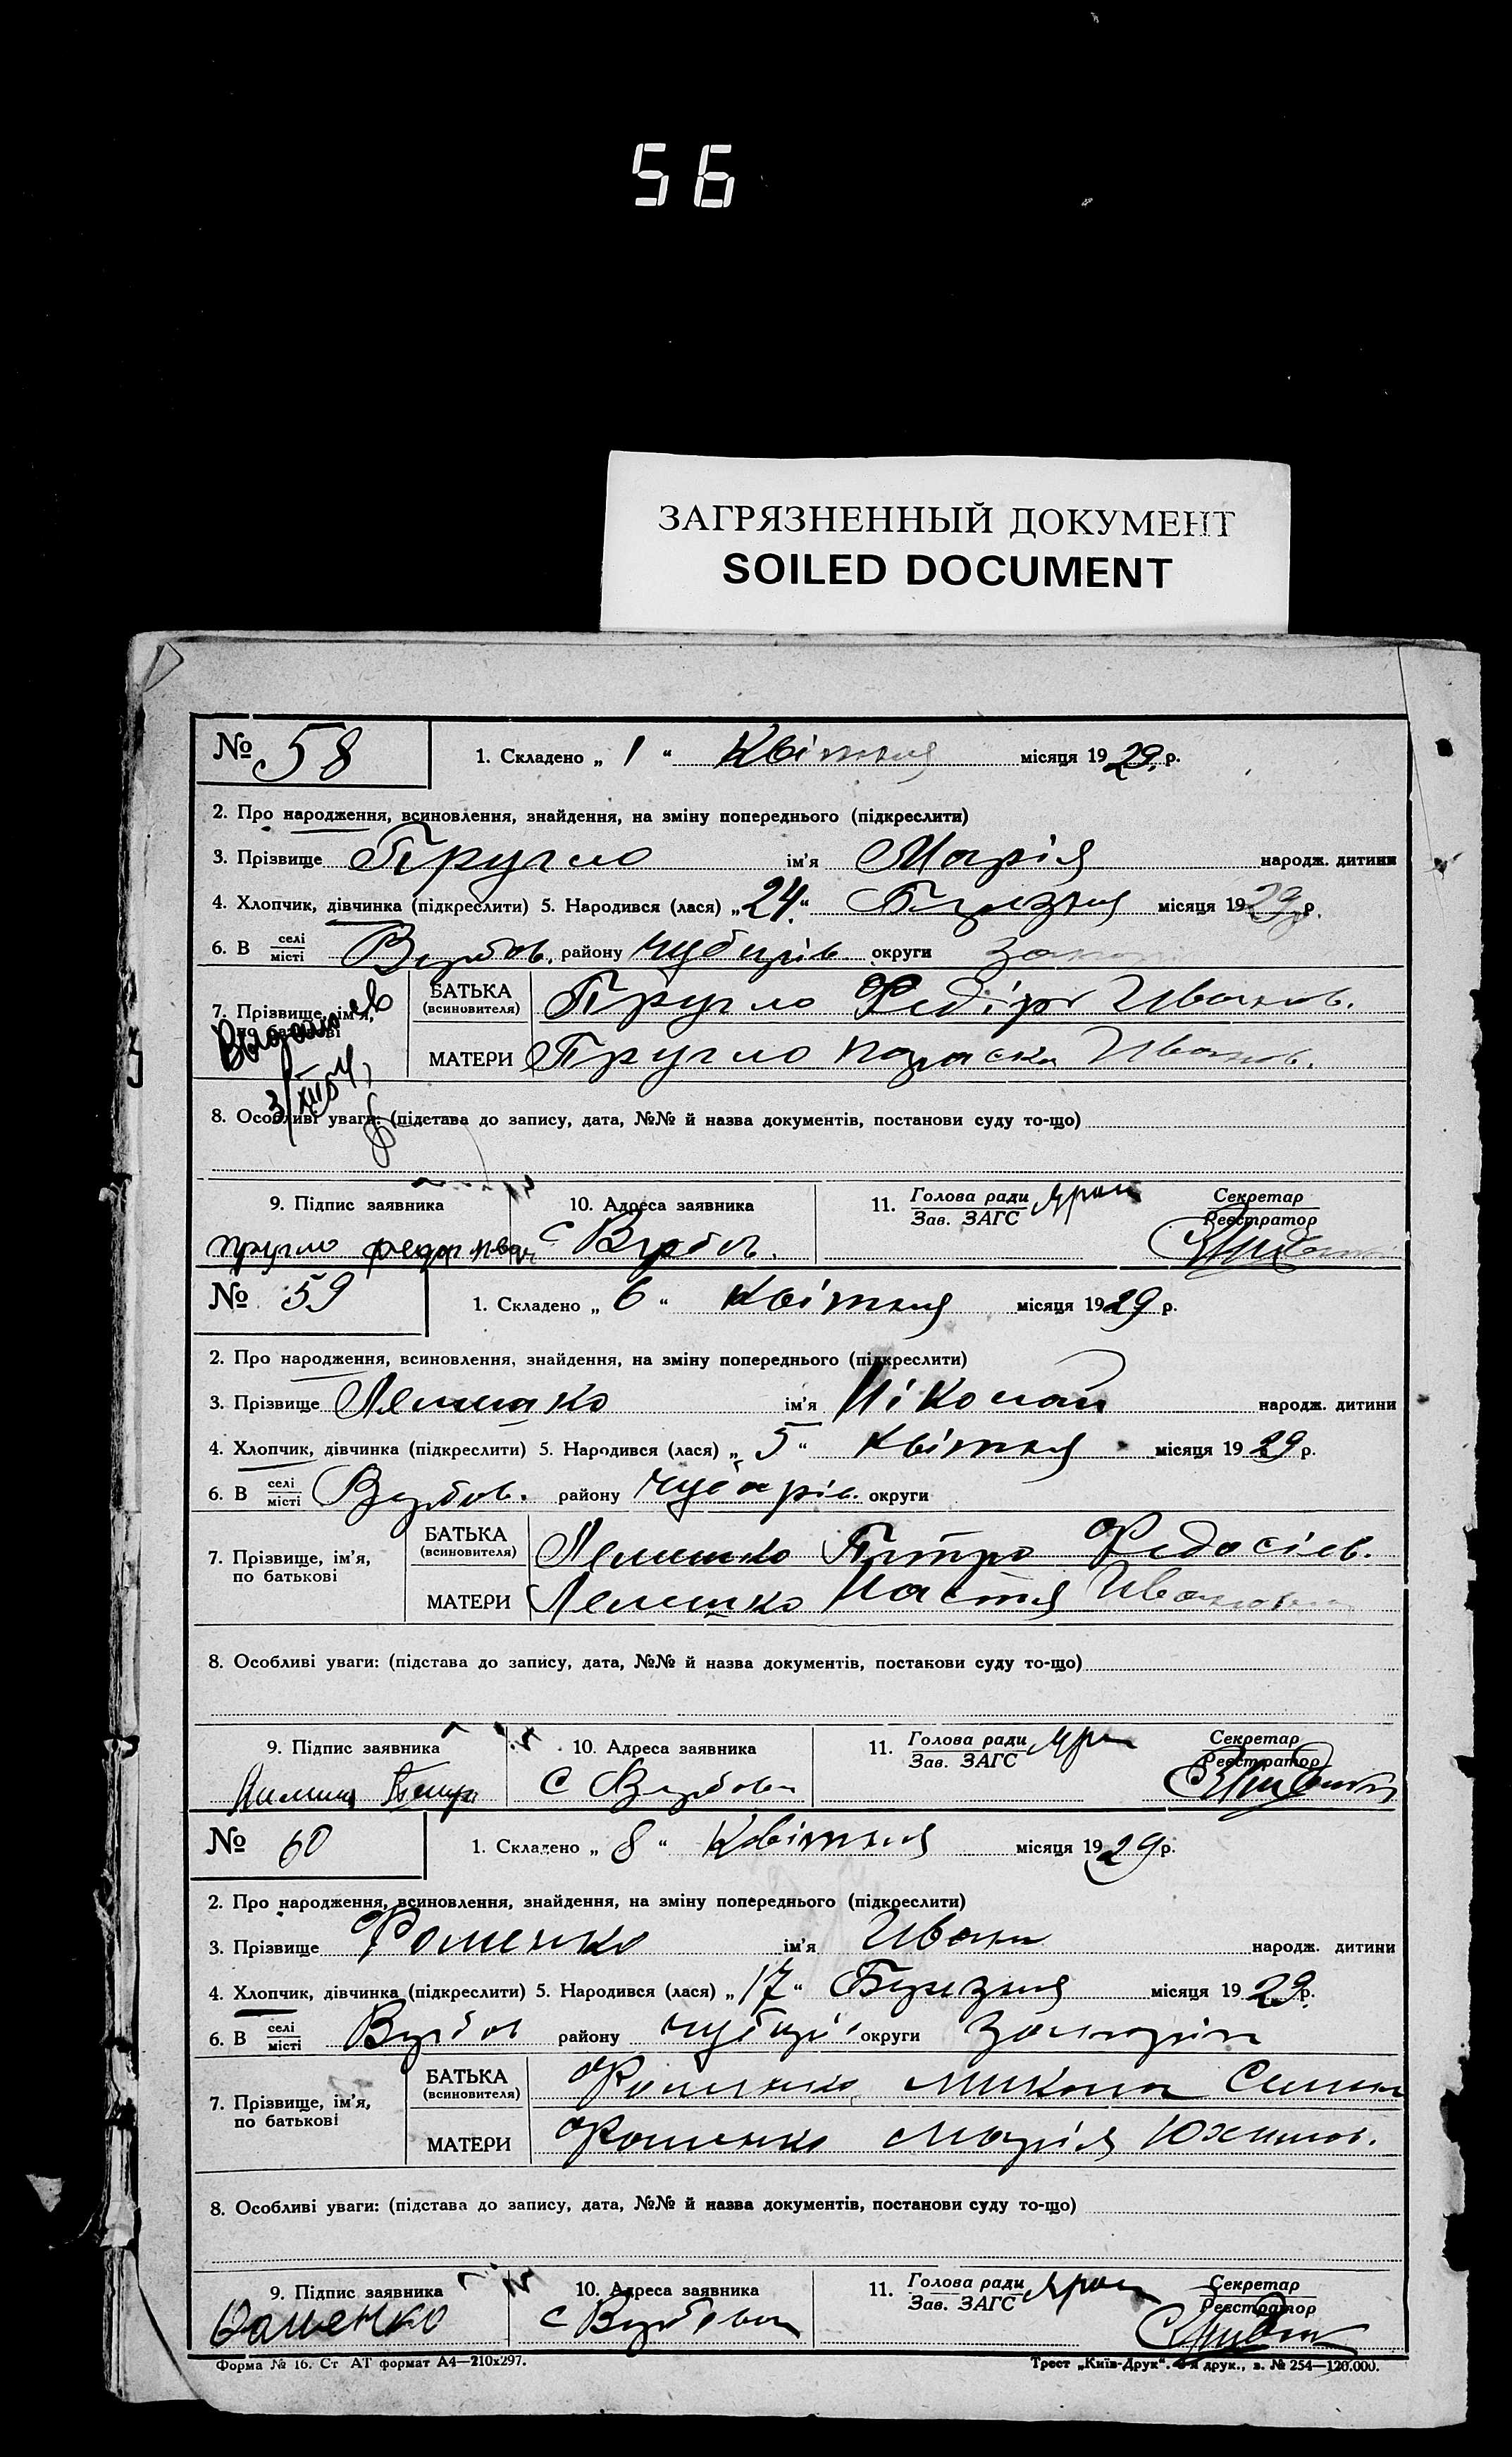 56
ЗАГРЯЗНЕННЫЙ ДОКУМЕНТ
SOILED DOCUMENT
№ 58 1. Складено „ 1 “ Квітня місяця 1929 р.
2. Про народження, всиновлення, знайдення, на зміну попереднього (підкреслити)
3. Прізвище Пругло ім'я Марія народж. дитини
4. Хлопчик, дівчинка (підкреслити) 5. Народився (лася) „24“ Березня місяця 1929 р.
6. В селі/місті Вербов. району Чубарів. округи Запоріз
7. Прізвище, ім'я, по батькові
БАТЬКА (всиновителя) Пругло Федір Иванов.
МАТЕРИ Пругло Параска Иванов.
3/XII 54
8. Особливі уваги: (підстава до запису, дата, №№ й назва документів, постанови суду то-що)
9. Підпис заявника 10. Адреса заявника 11. Голова ради Секретар
Зав. ЗАГС Реєстратор
пругло федор иван с Вербов.
№ 59 1. Складено „ 6 “ Квітня місяця 1929 р.
2. Про народження, всиновлення, знайдення, на зміну попереднього (підкреслити)
3. Прізвище Лемішко ім'я Ніколай народж. дитини
4. Хлопчик, дівчинка (підкреслити) 5. Народився (лася) „ 5 “ Квітня місяця 1929 р.
6. В селі/місті Вербов. району Чубарів. округи
7. Прізвище, ім'я, по батькові
БАТЬКА (всиновителя) Лемішко Петро Федосіев.
МАТЕРИ Лемішко Настя Ивановна
8. Особливі уваги: (підстава до запису, дата, №№ й назва документів, постанови суду то-що)
9. Підпис заявника 10. Адреса заявника 11. Голова ради Секретар
Зав. ЗАГС Реєстратор
с Вербова
№ 60 1. Складено „ 8 “ Квітня місяця 1929 р.
2. Про народження, всиновлення, знайдення, на зміну попереднього (підкреслити)
3. Прізвище Фоменко ім'я Иван народж. дитини
4. Хлопчик, дівчинка (підкреслити) 5. Народився (лася) „17“ Березня місяця 1929 р.
6. В селі/місті Вербов району Чубарів округи Запоріз
7. Прізвище, ім'я, по батькові
БАТЬКА (всиновителя) Фоменко Микола Семен
МАТЕРИ Фоменко Марія Юхимов.
8. Особливі уваги: (підстава до запису, дата, №№ й назва документів, постанови суду то-що)
9. Підпис заявника 10. Адреса заявника 11. Голова ради Секретар
Зав. ЗАГС Реєстратор
Фоменко с Вербова
Форма № 16. Ст АТ формат А4—210х297. Трест „Київ-Друк“. друк., з. № 254—120.000.